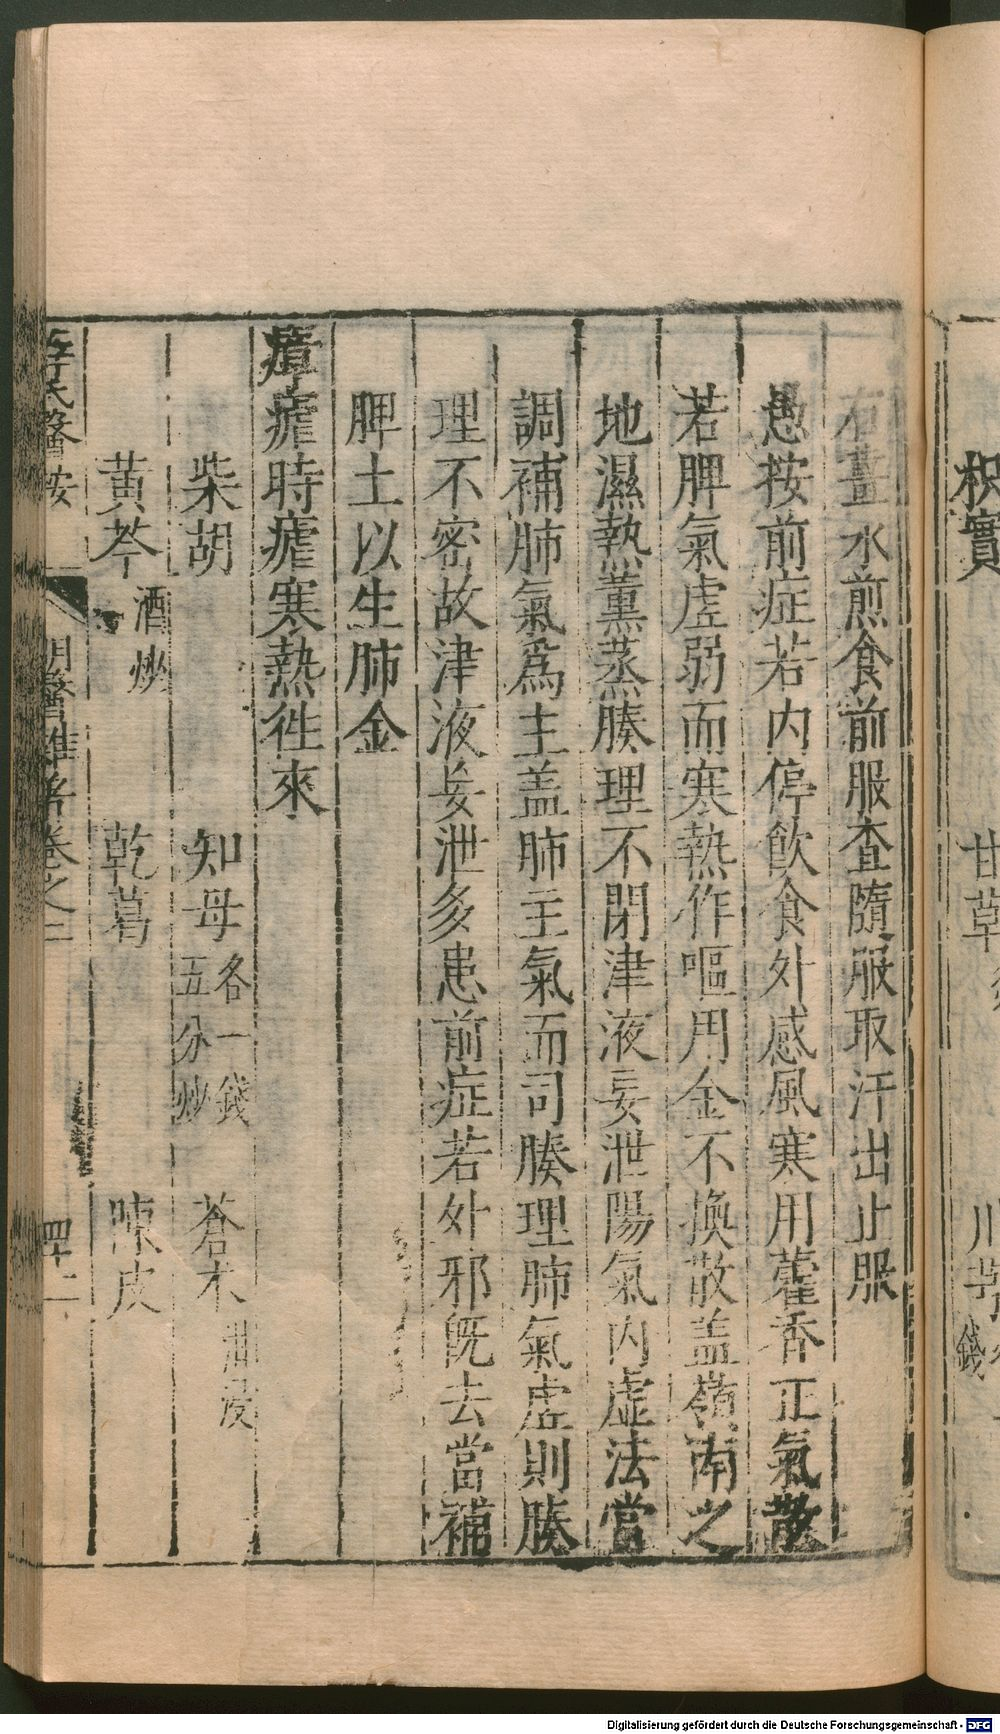 枳實
甘草
川芎
錢
右薑水煎食前服查隨服取汗出止服
愚按前症若内停飲食外感風寒用藿香正氣散
若脾氣虛弱而寒熱作嘔用金不換散盖嶺南之
地濕熱薰蒸腠理不閉津液妄泄陽氣内虛法當
調補肺氣爲主盖肺主氣而司腠理肺氣虛則腠
理不密故津液妄泄多患前症若外邪既去當補
脾土以生肺金
瘴瘧時瘧寒熱徃來
柴胡 知母各一錢五分炒 蒼木泔浸
黃芩酒炒 乾葛 陳皮
薛氏醫按 明醫雜著卷之二 四十二
Digitalisierung gefördert durch die Deutsche Forschungsgemeinschaft - DFG